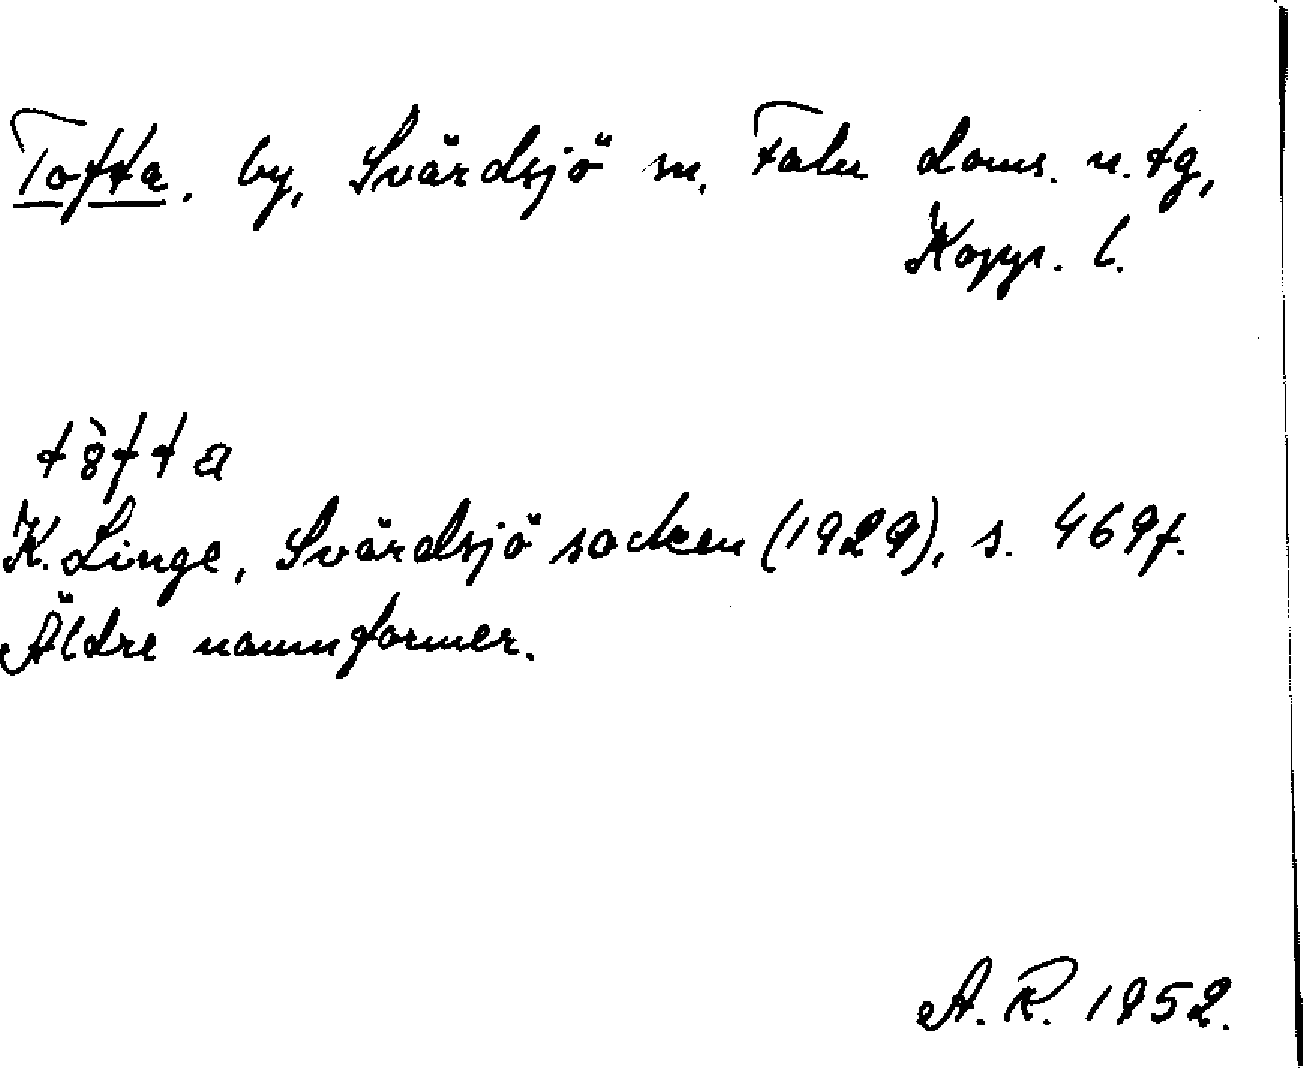 Tofta, by, Svärdsjö sn, Falu doms. n. tg,
Kopp. l.
tȍfta
K. Linge, Svärdsjö socken (1929), s. 469f.
Äldre namnformer.
A. R. 1952.